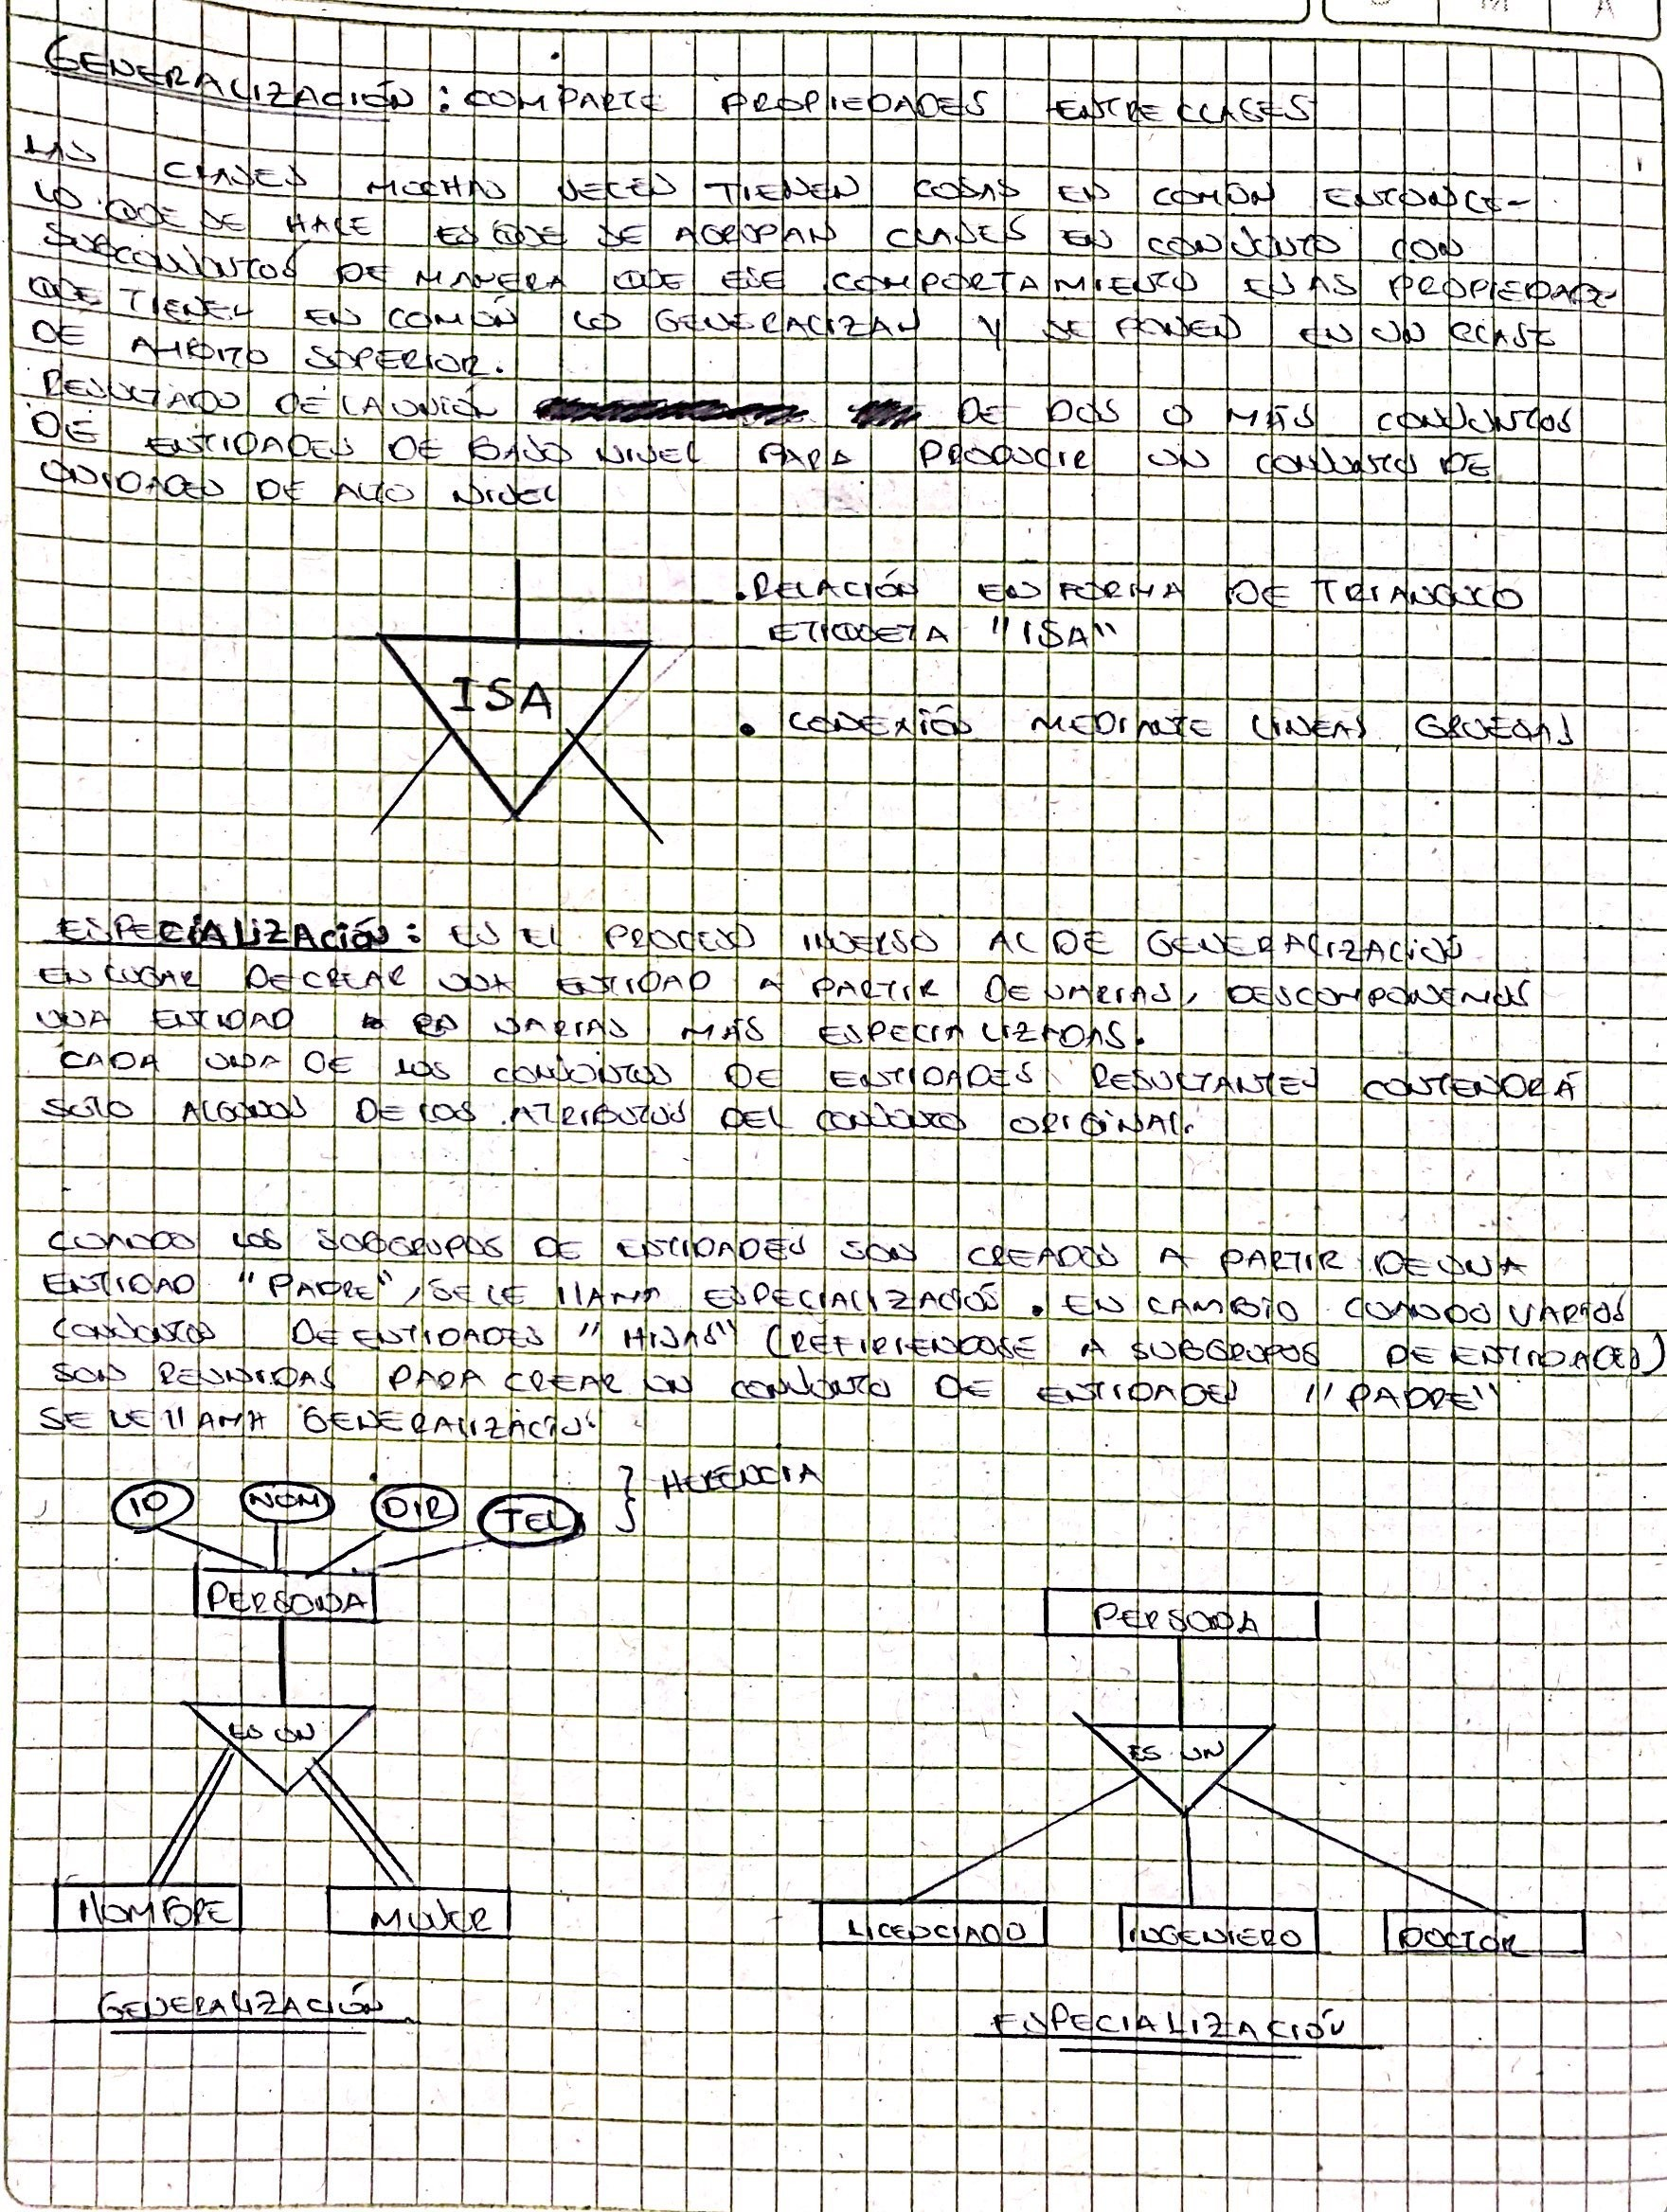 M A
GENERALIZACIÓN: COMPARTE PROPIEDADES ENTRE CLASES
LAS CLASES MUCHAS VECES TIENEN COSAS EN COMÚN ENTONCE-
LO QUE SE HACE ES QUE SE AGRUPAN CLASES EN CONJUNTO CON
SUBCONJUNTOS DE MANERA QUE ESE COMPORTAMIENTO ESAS PROPIEDADE-
QUE TIENEN EN COMÚN LO GENERALIZAN Y SE PONEN EN UN CLASE
DE AMBITO SUPERIOR.
RESULTADO DE LA UNIÓN DE DOS O MÁS CONJUNTOS
DE ENTIDADES DE BAJO NIVEL PARA PRODUCIR UN CONJUNTO DE
ENTIDADES DE ALTO NIVEL
.RELACIÓN EN FORMA DE TRIANGULO
ETIQUETA "ISA"
ISA
• CONEXIÓN MEDIANTE LINEAS GRUESAS
ESPECIALIZACIÓN: ES EL PROCESO INVERSO AL DE GENERALIZACIÓN
EN LUGAR DE CREAR UNA ENTIDAD A PARTIR DE VARIAS, DESCOMPONEMOS
UNA ENTIDAD EN VARIAS MÁS ESPECIALIZADAS.
CADA UNA DE LOS CONJUNTOS DE ENTIDADES RESULTANTES CONTENDRÁ
SOLO ALGUNOS DE LOS ATRIBUTOS DEL CONJUNTO ORIGINAL.
CUANDO LOS SUBGRUPOS DE ENTIDADES SON CREADOS A PARTIR DE UNA
ENTIDAD "PADRE", SE LE LLAMA ESPECIALIZACIÓN. EN CAMBIO CUANDO VARIOS
CONJUNTOS DE ENTIDADES "HIJAS" (REFIRIENDOSE A SUBGRUPOS DE ENTIDADES)
SON REUNIDAS PARA CREAR UN CONJUNTO DE ENTIDADES "PADRE"
SE LE LLAMA GENERALIZACIÓN
HERENCIA
ID NOM DIR TEL
PERSONA
PERSONA
ES UN
ES UN
HOMBRE MUJER
LICENCIADO INGENIERO DOCTOR
GENERALIZACIÓN
ESPECIALIZACIÓN